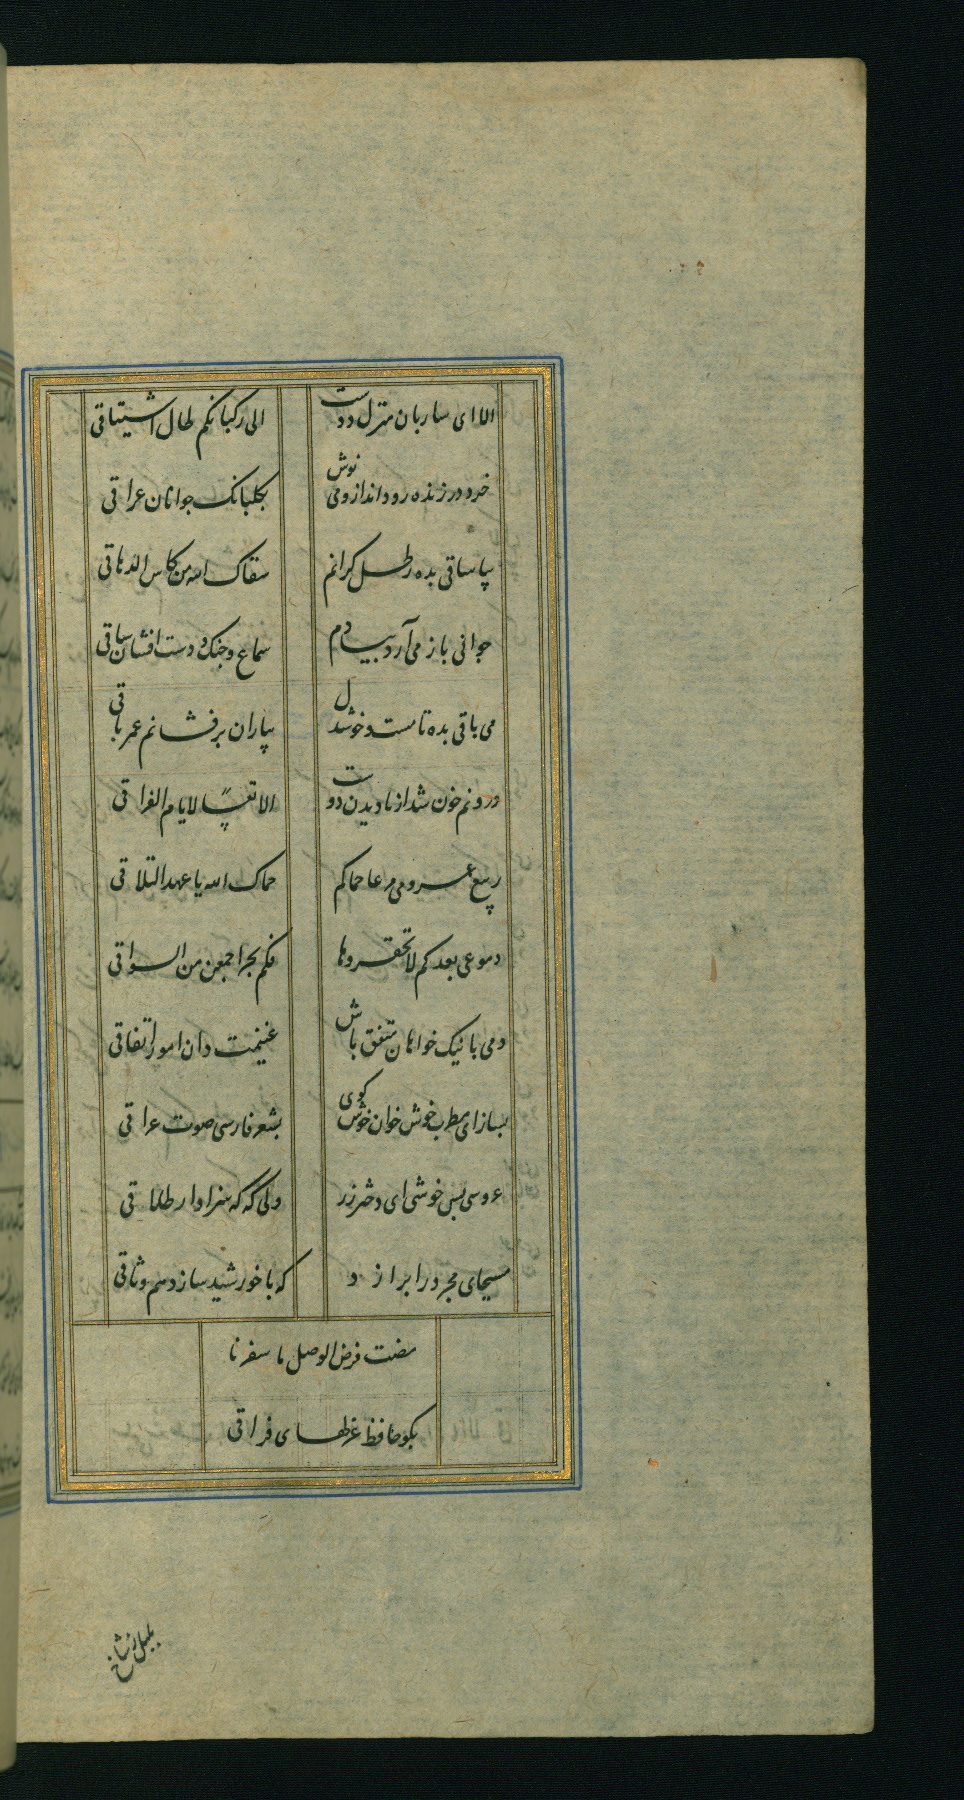 الا ای ساربان منزل دوست الی رکبانکم طال اشتیاقی
خرد در زنده رود انداز و می نوش بکلبانک جوانان عراقی
بیا ساقی بده رطل کرانم سقاک الله من کاس الدهاقی
جوانی باز می آرد بیادم سماع و چنک و دست افشان ساقی
می باقی بده تا مست و خوشدل بیاران برفشانم عمر باقی
درونم خون شد از نادیدن دوست الا تعسا لایام الفراقی
ربیع عمر و می مرعا حماکم حماک الله یا عهد التلاقی
دموعی بعدکم لا تحقروها فکم بحرا جمعن من السواقی
دمی با نیک خواهان متفق باش غنیمت دان امور اتفاقی
بساز ای مطرب خوش خوان خوش کوی بشعر فارسی صوت عراقی
عروسی بس خوشی ای دختر رز ولی که که سزاوار طلاقی
مسیحای مجرد را برازد که با خورشید سازد هم وثاقی
مضت فرض الوصل ما سفرنا
بکو حافظ غزلهای فراقی
بلبل ز شاخ